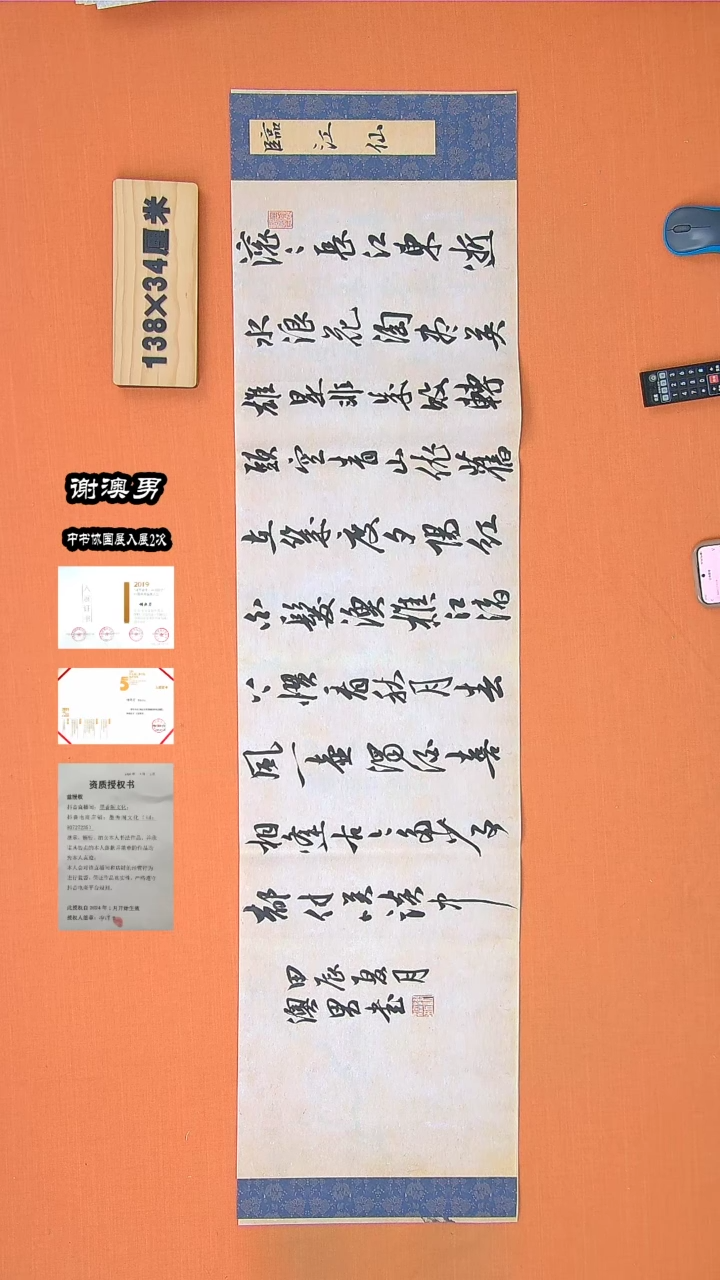 臨江仙
滚〻長江東逝
水浪花淘尽英
雄是非成敗轉
頭空青山依舊
在幾度夕陽紅
白髮漁樵江渚
上慣看秋月春
風一壺濁酒喜
相逢古今多少事
都付笑談中
甲辰夏月
澳男書
138×34厘米
谢澳男
中书协国展入展2次
2019
5
资质授权书
兹授权